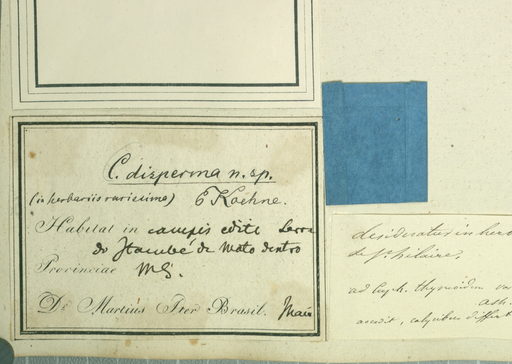 C. disperma n. sp.
(in herbariis rarissima) E Koehne.
Habitat in campis editis Serra
do Itambé de Mato dentro
Provinciae MG.
Dr. Martius Iter Brasil. Maio
desideratus in herb
de St. Hilaire.
ad Cuph. thymoidem
accedit, calycibus differt